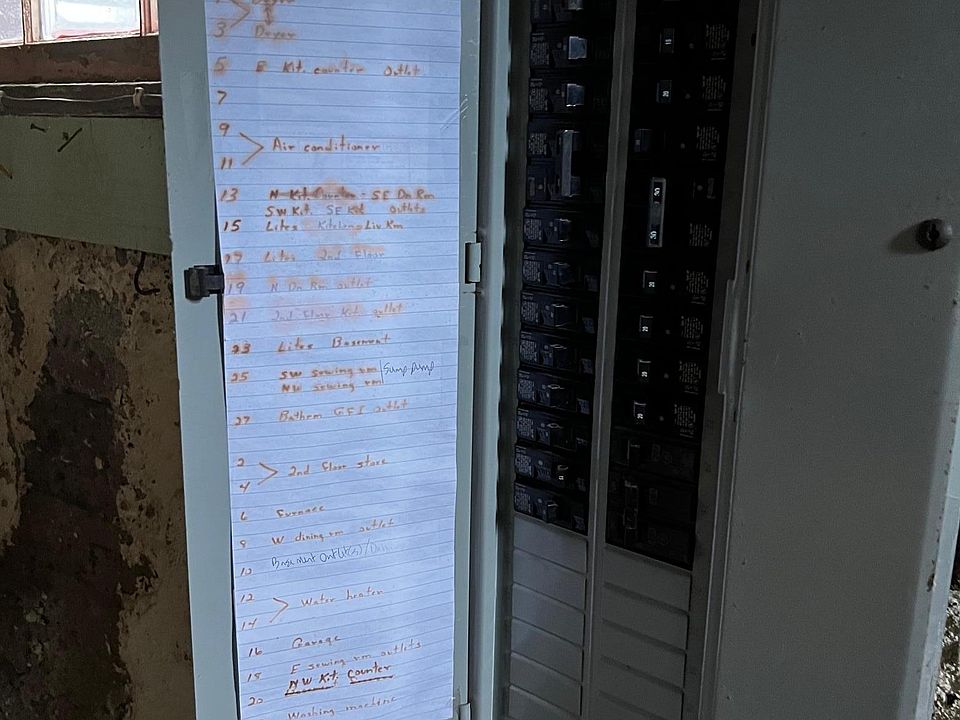 3 Dryer
5 E Kit. counter Outlet
7
9
Air conditioner
11
13 N Kit. Counter - SE Dn Rm
SW Kit. SE Kit outlets
15 Lites Kitchen, Liv Rm
17 Lites 2nd Floor
19 N Dn Rm outlet
21 2nd Floor Kit. outlet
23 Lites Basement
25 SW sewing rm Sump pump
NW sewing rm
27 Bathrm GFI outlet
2
2nd floor stove
4
6 Furnace
8 W dining rm outlet
10 Basement Outlet(s)/
12
Water heater
14
16 Garage
18 E sewing rm outlets
20 NW Kit. Counter
Washing machine
15
20
50
20
20
20
20